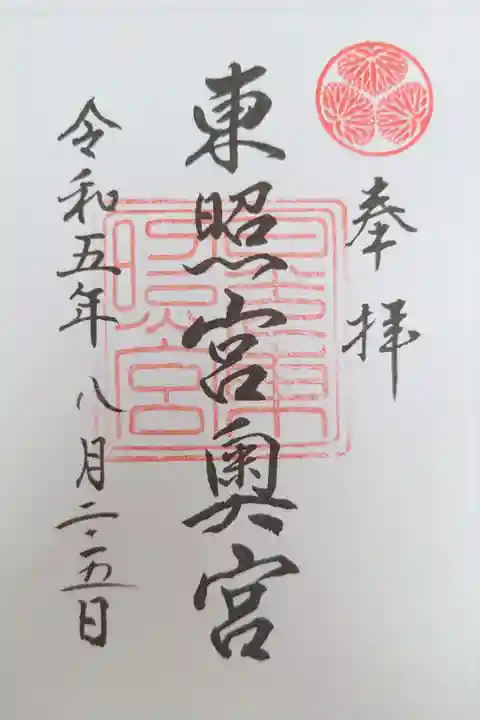 奉拝
東照宮奥宮
令和五年八月二十五日